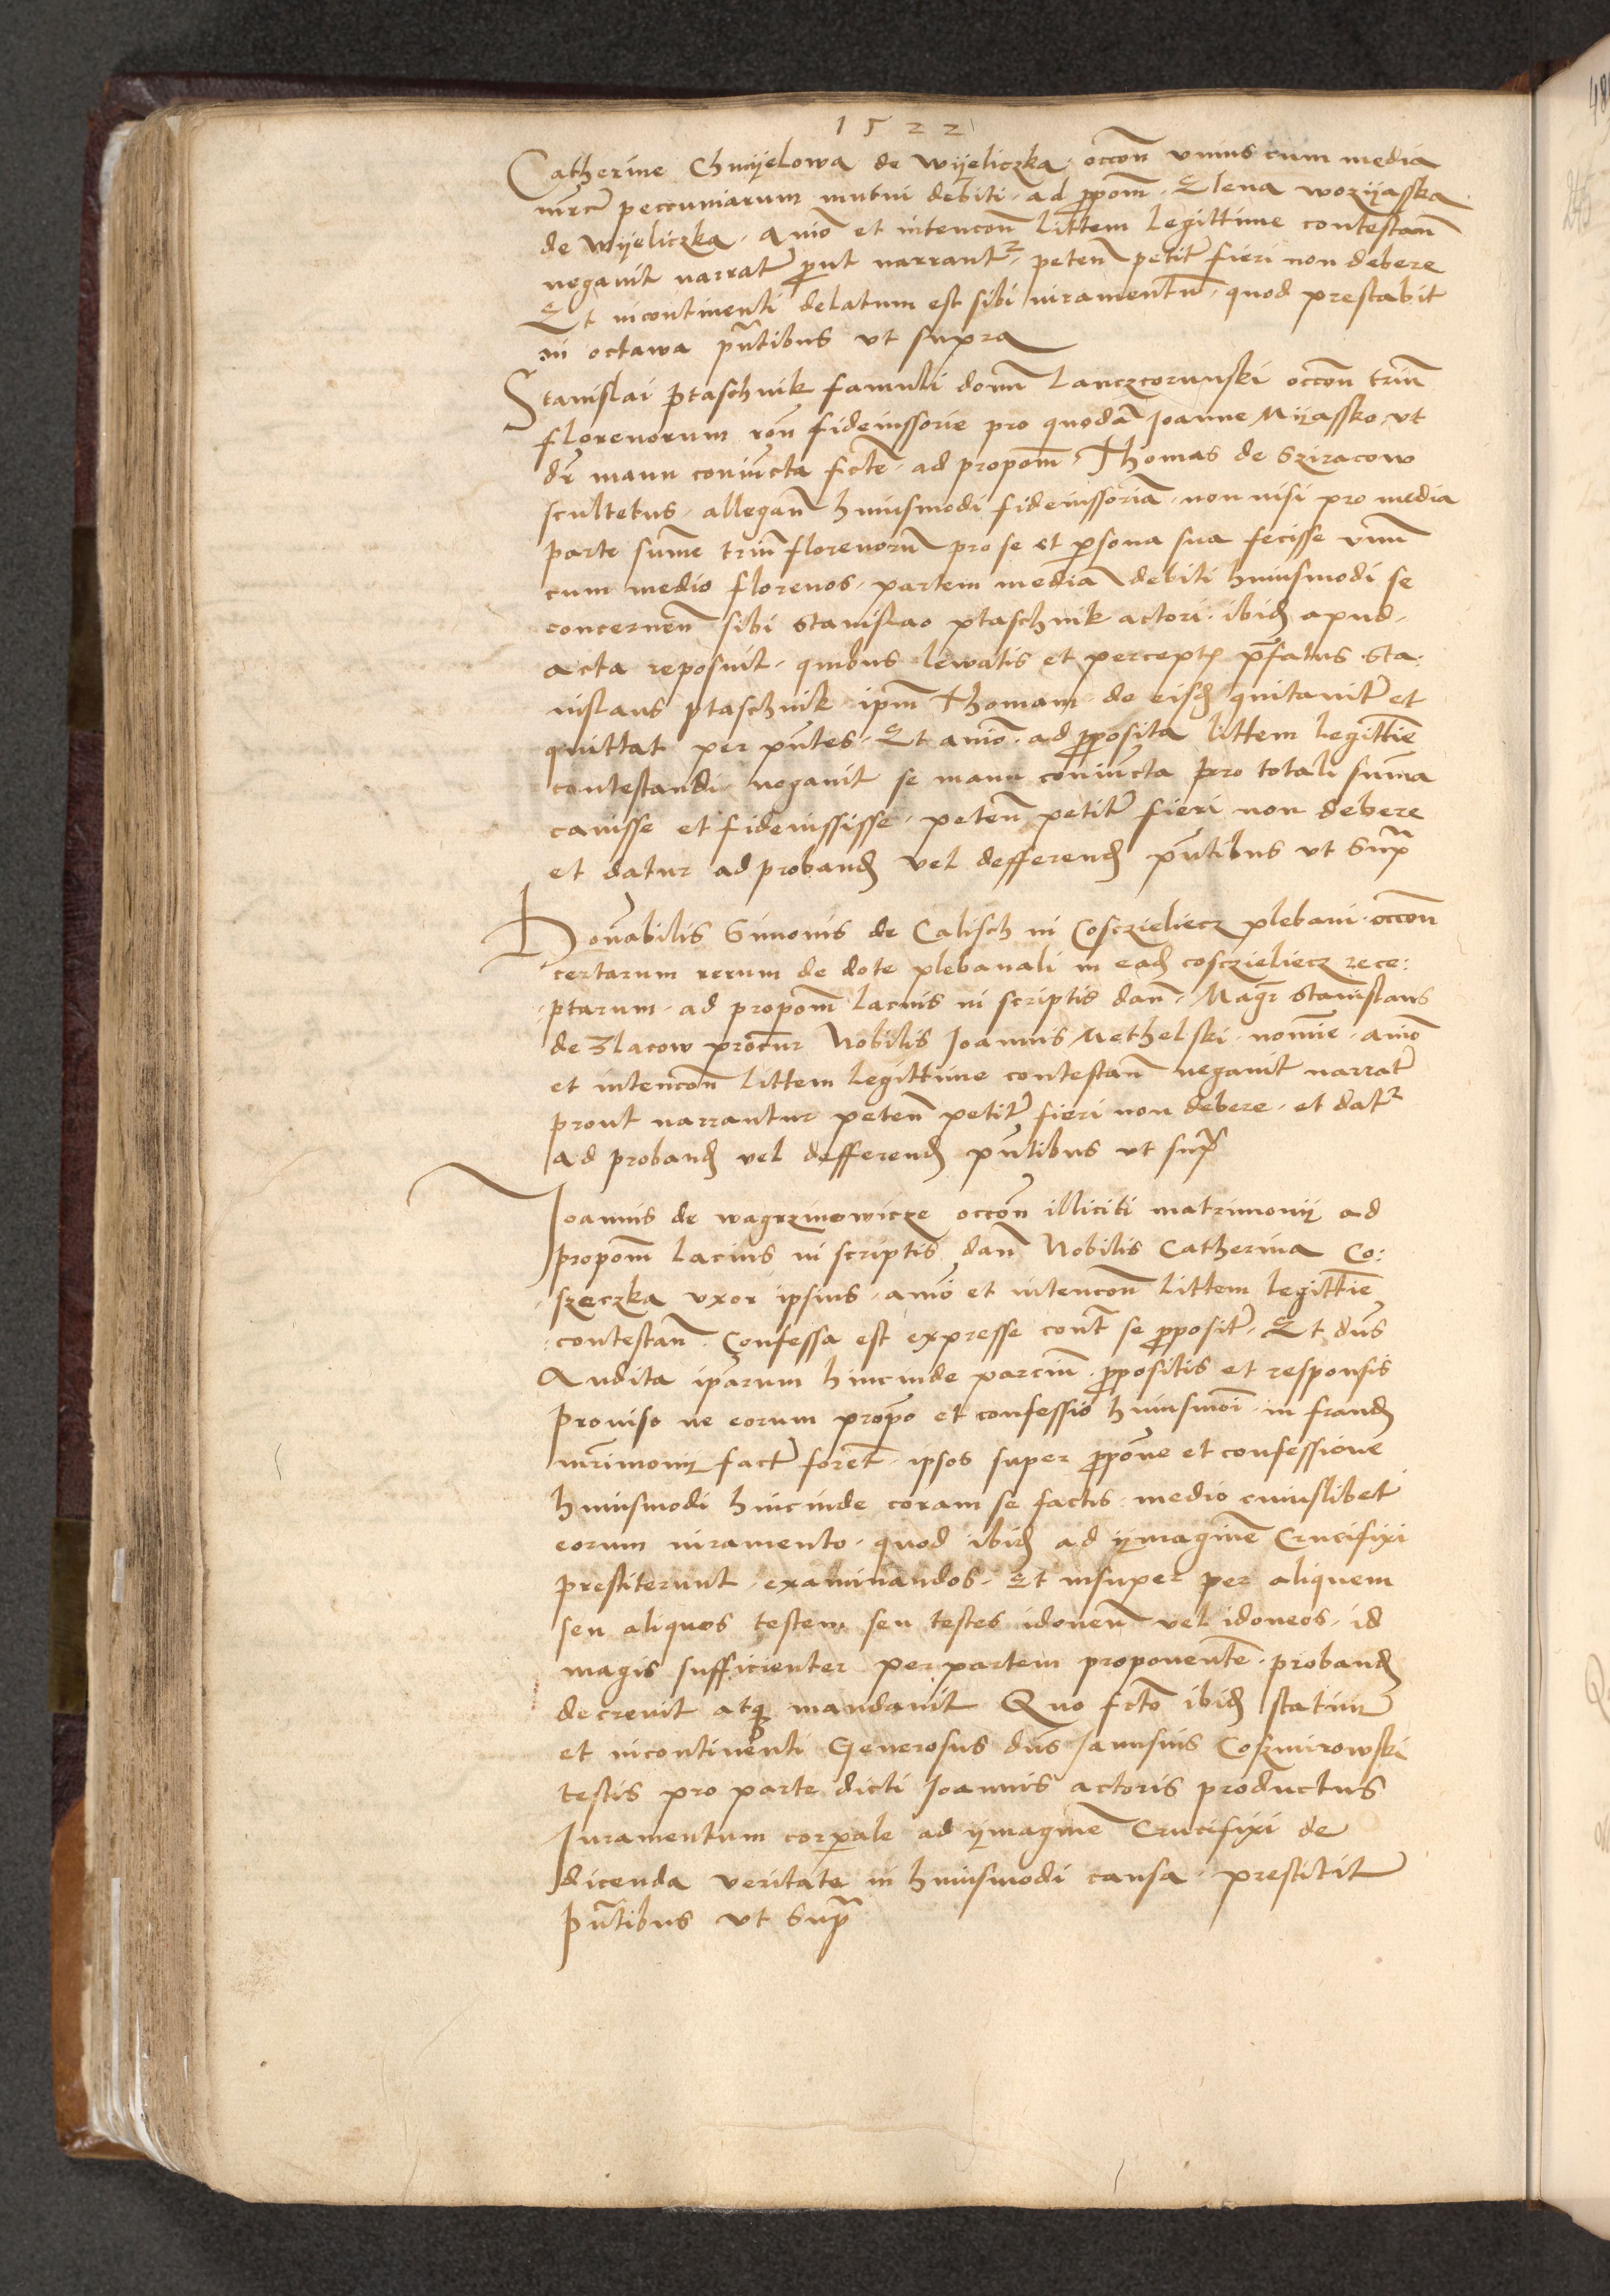 1522
Catherine Chmyelowa de Wyeliczka occōn vnius cum media
mrce peccuniarum mutui debiti ad ꝓpoᷠm Elena wozyasska
de Wyeliczka Animo et intencōn littem legittime contestan̄
negauit narrata ꝓut narrantur peten̄ petita fieri non debere
Et incontinenti delatum est sibi iuramentū quod prestabit
in octawa pn̄tibus vt supra
Stanislai Ptaschnik famuli domi Lanczcorunski occōn triū
florenorum rōn fideiussorie pro quodā Joanne Myassko vt
dr̄ manu coniūcta ficte ad propom̄ Thomas de Sziracow
scultetus allegan̄ huiusmodi fideiussoriā non nisi pro media
parte sum̄e triū florenorū pro se et ꝑsona sua fecisse vnū
cum medio florenos partem mediā debiti huiusmodi se
concernen̄ sibi Stanislao ptaschnik actori ibid apud
acta reposuit quibus lewatis et percept p̄fatus Sta:
nislaus ptaschnik ipm̄ Thomam de eisd quitauit et
quittat per pn̄tes Et animo ad ꝓposita littem legittīe
contestandi negauit se manu coniūcta pro totali sum̄a
cauisse et fideiussisse peten̄ petita fieri non debere
et datur ad proband vel defferend pn̄tibus vt Supͣ
Honorabilis Simonis de Calisch in Cosczieliecz plebani occōn
certarum rerum de dote plebanali in ead cosczieliecz rece:
ptarum ad propom̄ lacius in scriptis dan̄ Magr̄ Stanislaus
de Zlacow procur Nobilis Joannis Methelski nomīe animo
et intencōn littem legittime contestan̄ negauit narrata
prout narrantur peten̄ petita fieri non debere et datur
ad proband vel defferend pn̄tibus vt supͣ
Joannis de wagrzinowicze occōn illiciti matrimonij ad
propom̄ lacius in scriptis dan̄ Nobilis Catherina Co:
szeczka vxor ipsius animo et intencōn littem legittīe
contestan̄ Confessa est expresse contra se ꝓposita Et dn̄s
Audita iparum hincinde parciū ꝓpositis et responsis
Prouiso ne eorum propo et confessio huiusmōi in fraud
mr̄imonij facta foret ipsos super ꝓpoᷠne et confessione
huiusmodi hincinde coram se factis medio cuiuslibet
eorum iuramento quod ibid ad ymaginē Crucifixi
prestiterunt examinandos Et insuper per aliquem
seu aliquos testem seu testes idoneū vel idoneos id
magis sufficienter per partem proponentē proband
decreuit atqꝫ mandauit Quo fcto ibid statim
et incontinenti Generosus dn̄s Janusius Coszmirowski
testis pro parte dicti Joannis actoris productus
Juramentum corporale ad ymaginē Crucifixi de
dicenda veritate in huiusmodi causa prestitit
pn̄tibus vt Supͣ